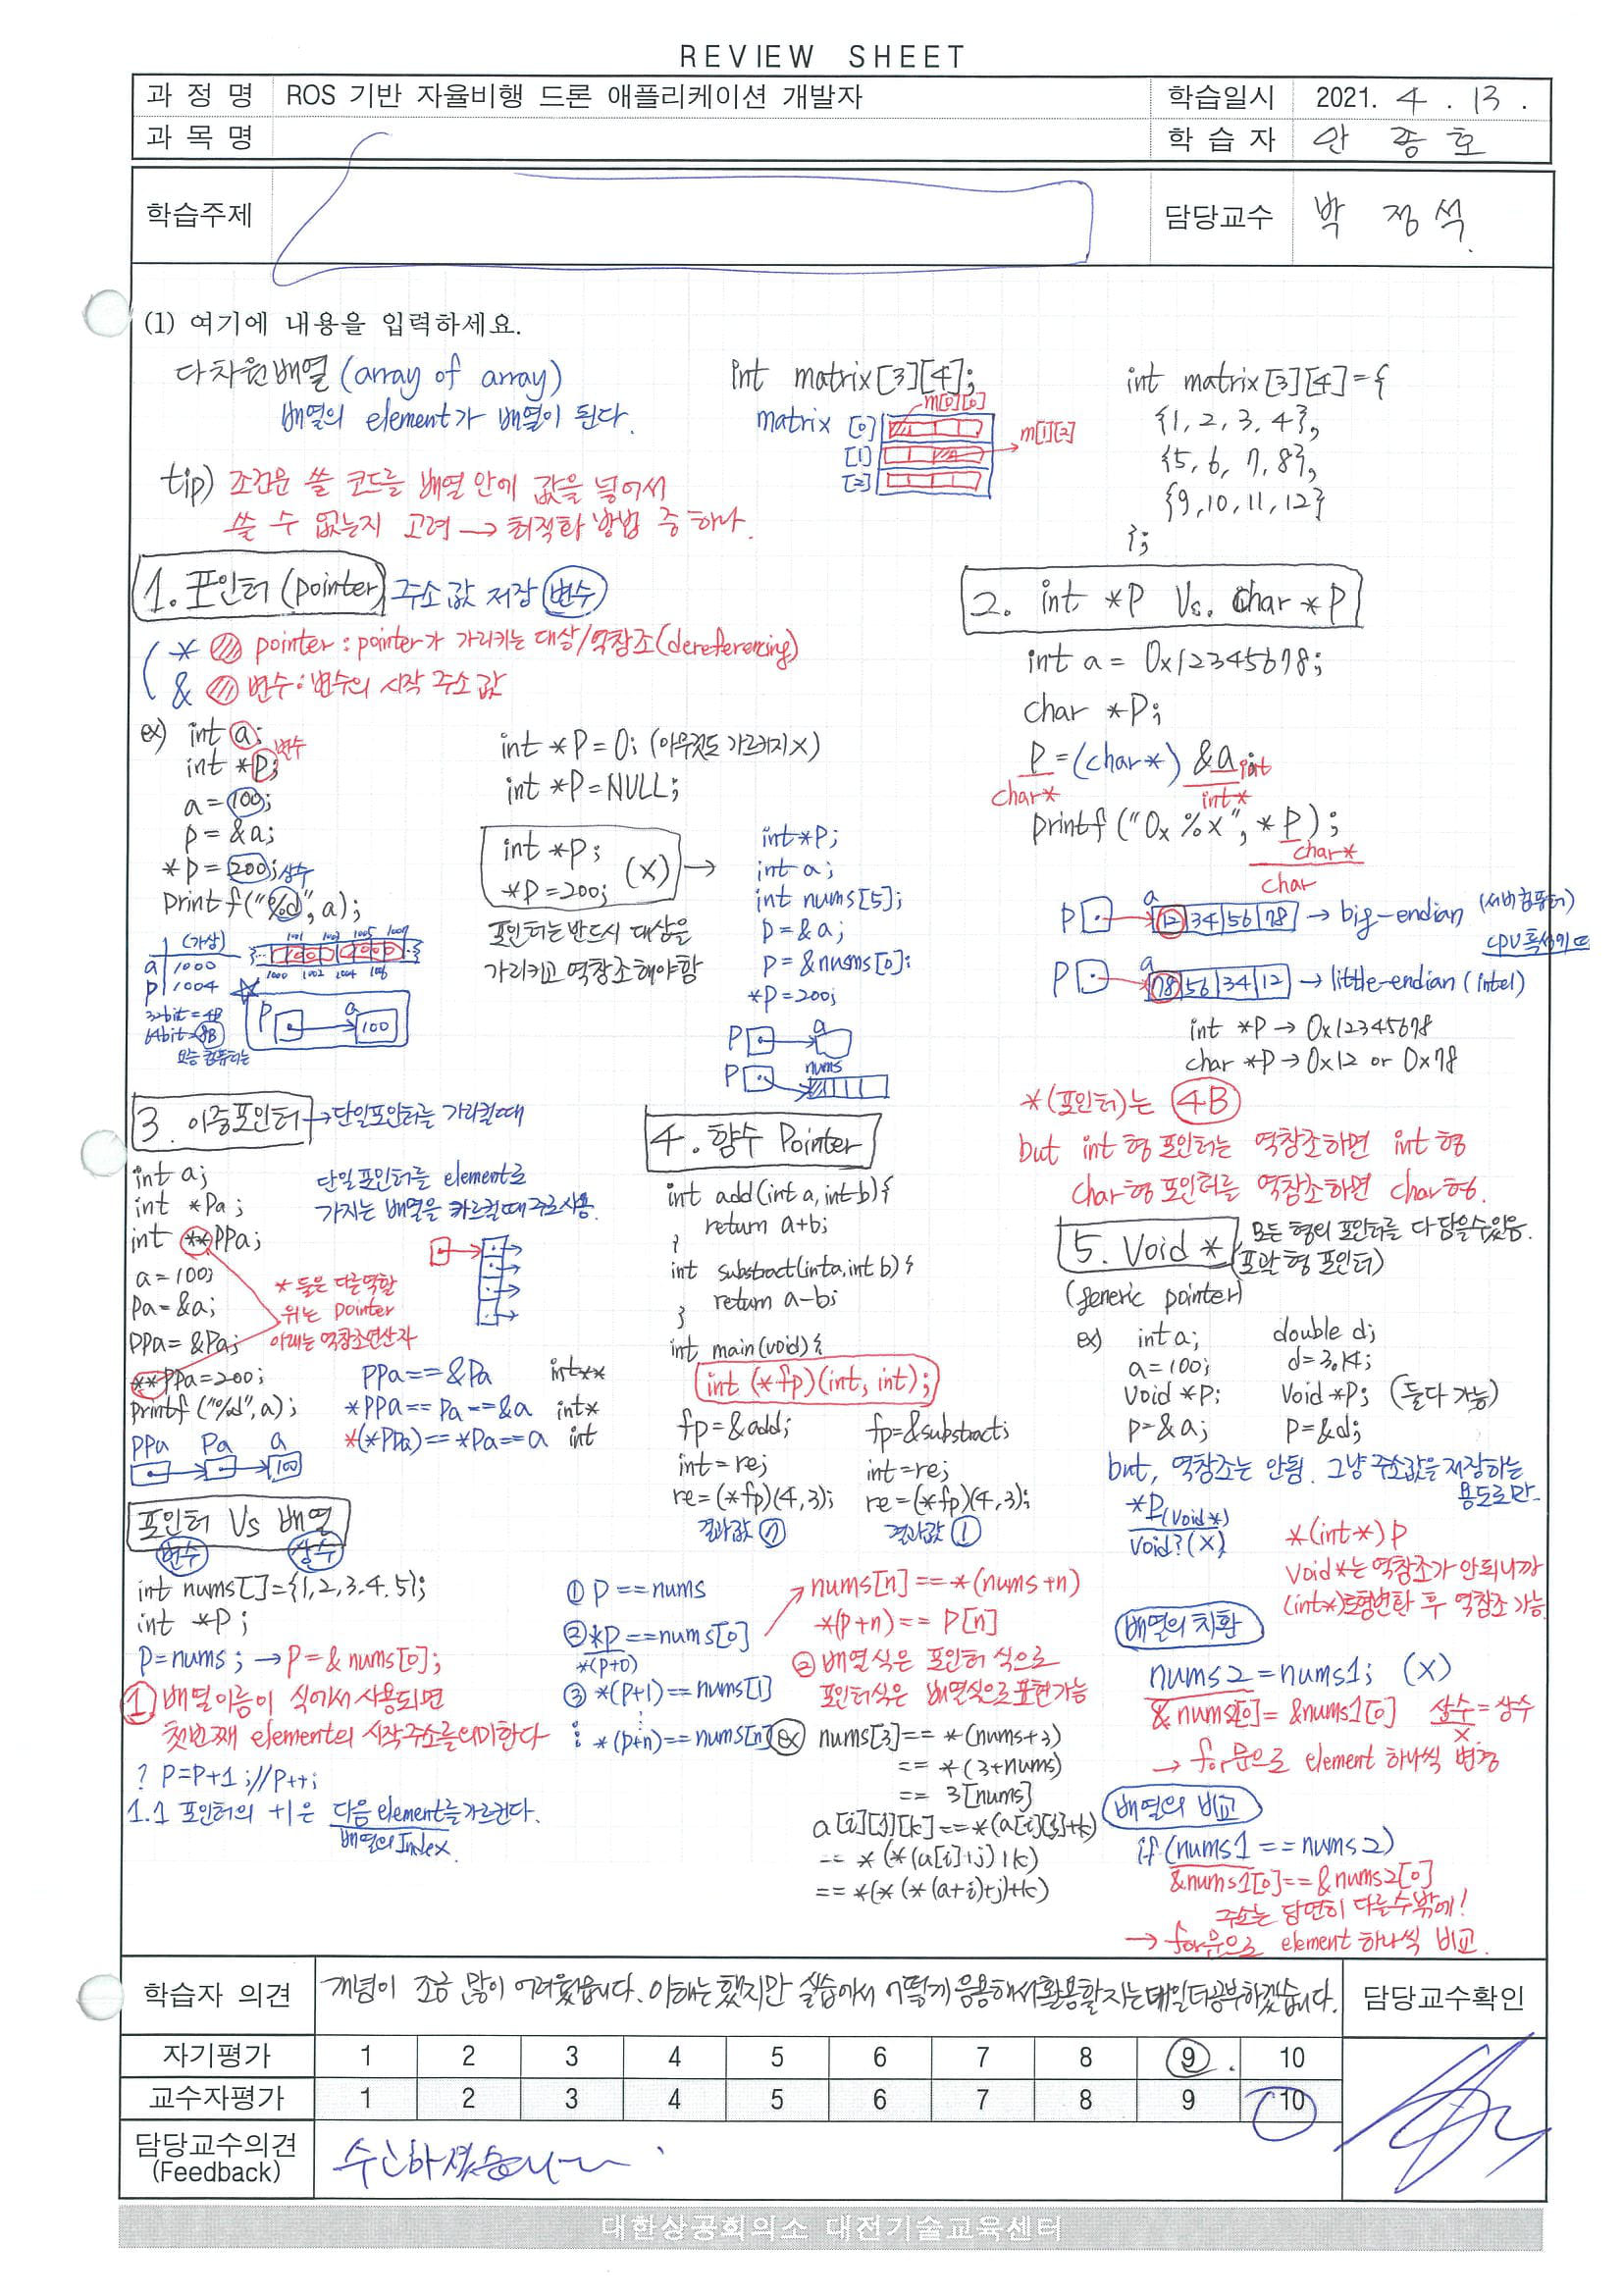 REVIEW SHEET
과 정 명 ROS 기반 자율비행 드론 애플리케이션 개발자 학습일시 2021. 4 . 13 .
과 목 명 학 습 자 안 종 호
학습주제 담당교수 박 정 석
(1) 여기에 내용을 입력하세요.
다차원배열 (array of array)
배열의 element가 배열이 된다.
tip) 조건문 쓸 코드를 배열 안에 값을 넣어서
쓸 수 없는지 고려 → 최적화 방법 중 하나.
int matrix[3][4];
m[0][0]
matrix [0]
[1] m[1][2]
[2]
int matrix[3][4]={
{1, 2, 3, 4},
{5, 6, 7, 8},
{9, 10, 11, 12}
};
1. 포인터 (pointer) 주소값 저장 변수
* pointer : pointer가 가리키는 대상/역참조(dereferencing)
& 변수 : 변수의 시작 주소값
ex) int a;
int *p; 변수
a = 100;
p = &a;
*p = 200; 상수
printf("%d", a);
(가상)
a 1000
p 1004
32bit = 4B
64bit = 8B
요즘 컴퓨터는
1001 1003 1005 1007
1000 1002 1004 106
P a
100
int *P = 0; (아무것도 가르키지 X)
int *P = NULL;
int *P;
*P = 200; (X) →
포인터는 반드시 대상을
가리키고 역참조해야함
int *P;
int a;
int nums[5];
p = &a;
p = &nums[0];
*p = 200;
P a
P nums
2. int *P Vs. char *P
int a = 0x12345678;
char *P;
P = (char*) &a int
char* int*
printf("0x %x", *P);
char*
char
P a 12 34 56 78 → big-endian (서버컴퓨터)
P a 78 56 34 12 → little-endian (intel)
int *P → 0x12345678
char *P → 0x12 or 0x78
*(포인터)는 4B
but int형 포인터는 역참조하면 int형
char형 포인터를 역참조하면 char형.
3. 이중포인터 → 단일포인터를 가리킬때
int a;
int *Pa;
int **PPa;
a = 100;
Pa = &a;
PPa = &Pa;
**PPa = 200;
printf("%d", a);
PPa Pa a
100
단일포인터를 element로
가지는 배열을 가르킬때 주로사용.
* 둘은 다른역할
위는 pointer
아래는 역참조연산자
PPa == &Pa int**
*PPa == Pa == &a int*
*(*PPa) == *Pa == a int
4. 함수 Pointer
int add(int a, int b){
return a+b;
}
int substract(int a, int b){
return a-b;
}
int main(void){
int (*fp)(int, int);
fp = &add; fp = &substract;
int = re; int = re;
re = (*fp)(4,3); re = (*fp)(4,3);
결과값 7 결과값 1
5. Void * 모든 형의 포인터를 다 담을수있음.
(포괄형 포인터)
(generic pointer)
ex) int a; double d;
a = 100; d = 3.14;
Void *P; Void *P; (둘다 가능)
p = &a; p = &d;
but, 역참조는 안됨. 그냥 주소값을 저장하는
용도로만.
*P (void*)
void? (X)
*(int*)p
Void*는 역참조가 안되니까
(int*)로 형변환 후 역참조 가능.
포인터 Vs 배열
변수 상수
int nums[] = {1,2,3,4,5};
int *P;
P = nums; → P = &nums[0];
1 배열이름이 식에서 사용되면
첫번째 element의 시작주소를의미한다
? P = P+1; //P++;
1.1 포인터의 +1은 다음 element를가르킨다.
배열의 Index.
① P == nums
② *P == nums[0]
*(P+0)
③ *(P+1) == nums[1]
⋮ *(p+n) == nums[n]
nums[n] == *(nums+n)
*(p+n) == P[n]
② 배열식은 포인터 식으로
포인터식은 배열식으로 표현가능
ex nums[3] == *(nums+3)
== *(3+nums)
== 3[nums]
a[i][j][k] == *(a[i][j]+k)
== *(*(a[i]+j)+k)
== *(*(*(a+i)+j)+k)
배열의 치환
nums2 = nums1; (X)
&nums2[0] = &nums1[0] 상수 = 상수
X
→ for문으로 element 하나씩 변경
배열의 비교
if (nums1 == nums2)
&nums1[0] == &nums2[0]
주소는 당연히 다를수밖에!
→ for문으로 element 하나씩 비교.
학습자 의견 개념이 조금 많이 어려웠습니다. 이해는 했지만 실습에서 어떻게 응용해서 활용할지는 매일 더 공부하겠습니다. 담당교수확인
자기평가 1 2 3 4 5 6 7 8 9 10
교수자평가 1 2 3 4 5 6 7 8 9 10
담당교수의견 수고하셨습니다
(Feedback)
대한상공회의소 대전기술교육센터